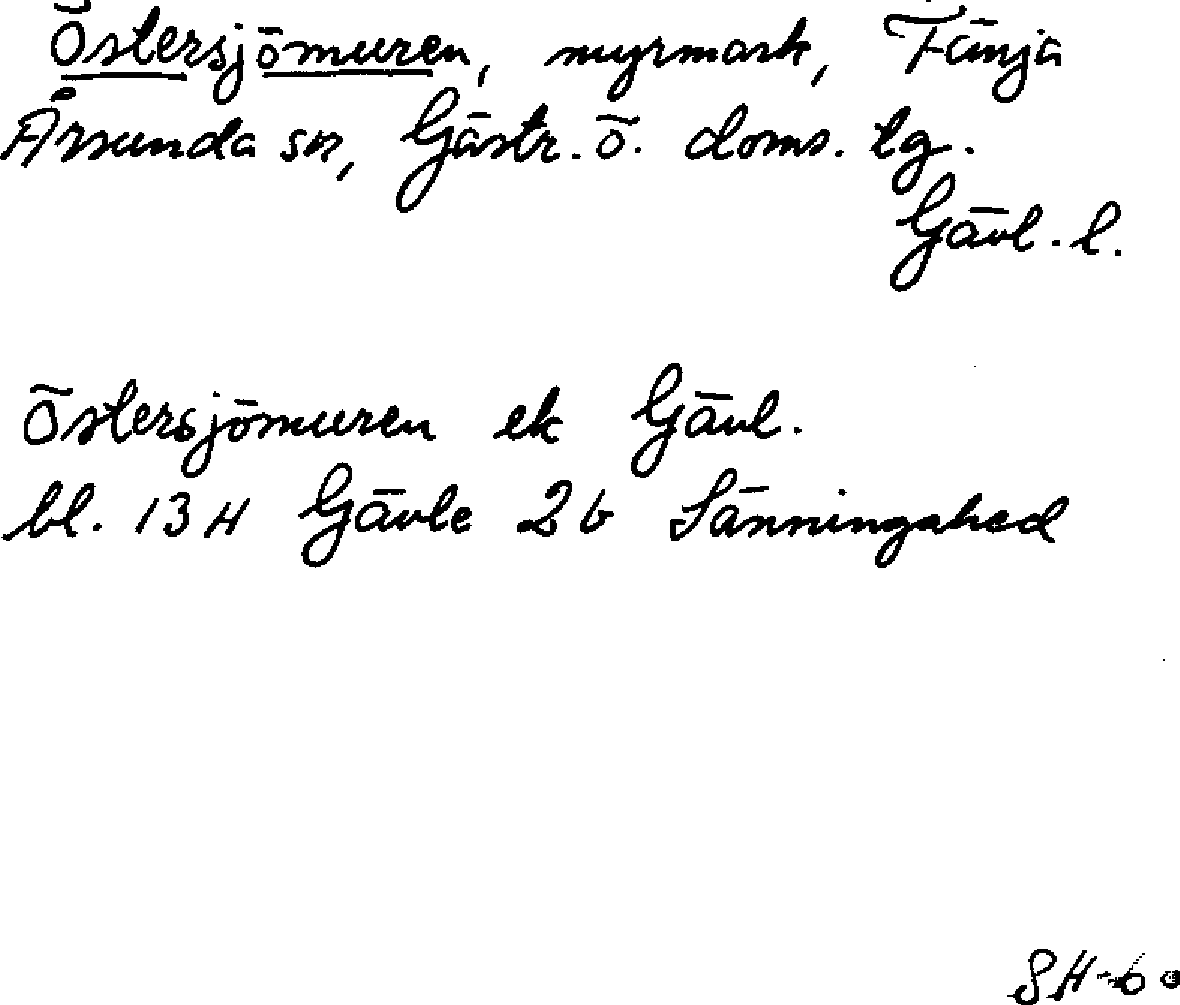 Östersjömuren, myrmark, Fänja
Årsunda sn, Gästr. ö. doms. tg.
Gävl. l.
Östersjömuren ek Gävl.
bl. 13 H Gävle 2 b Sänningahed
SH-60